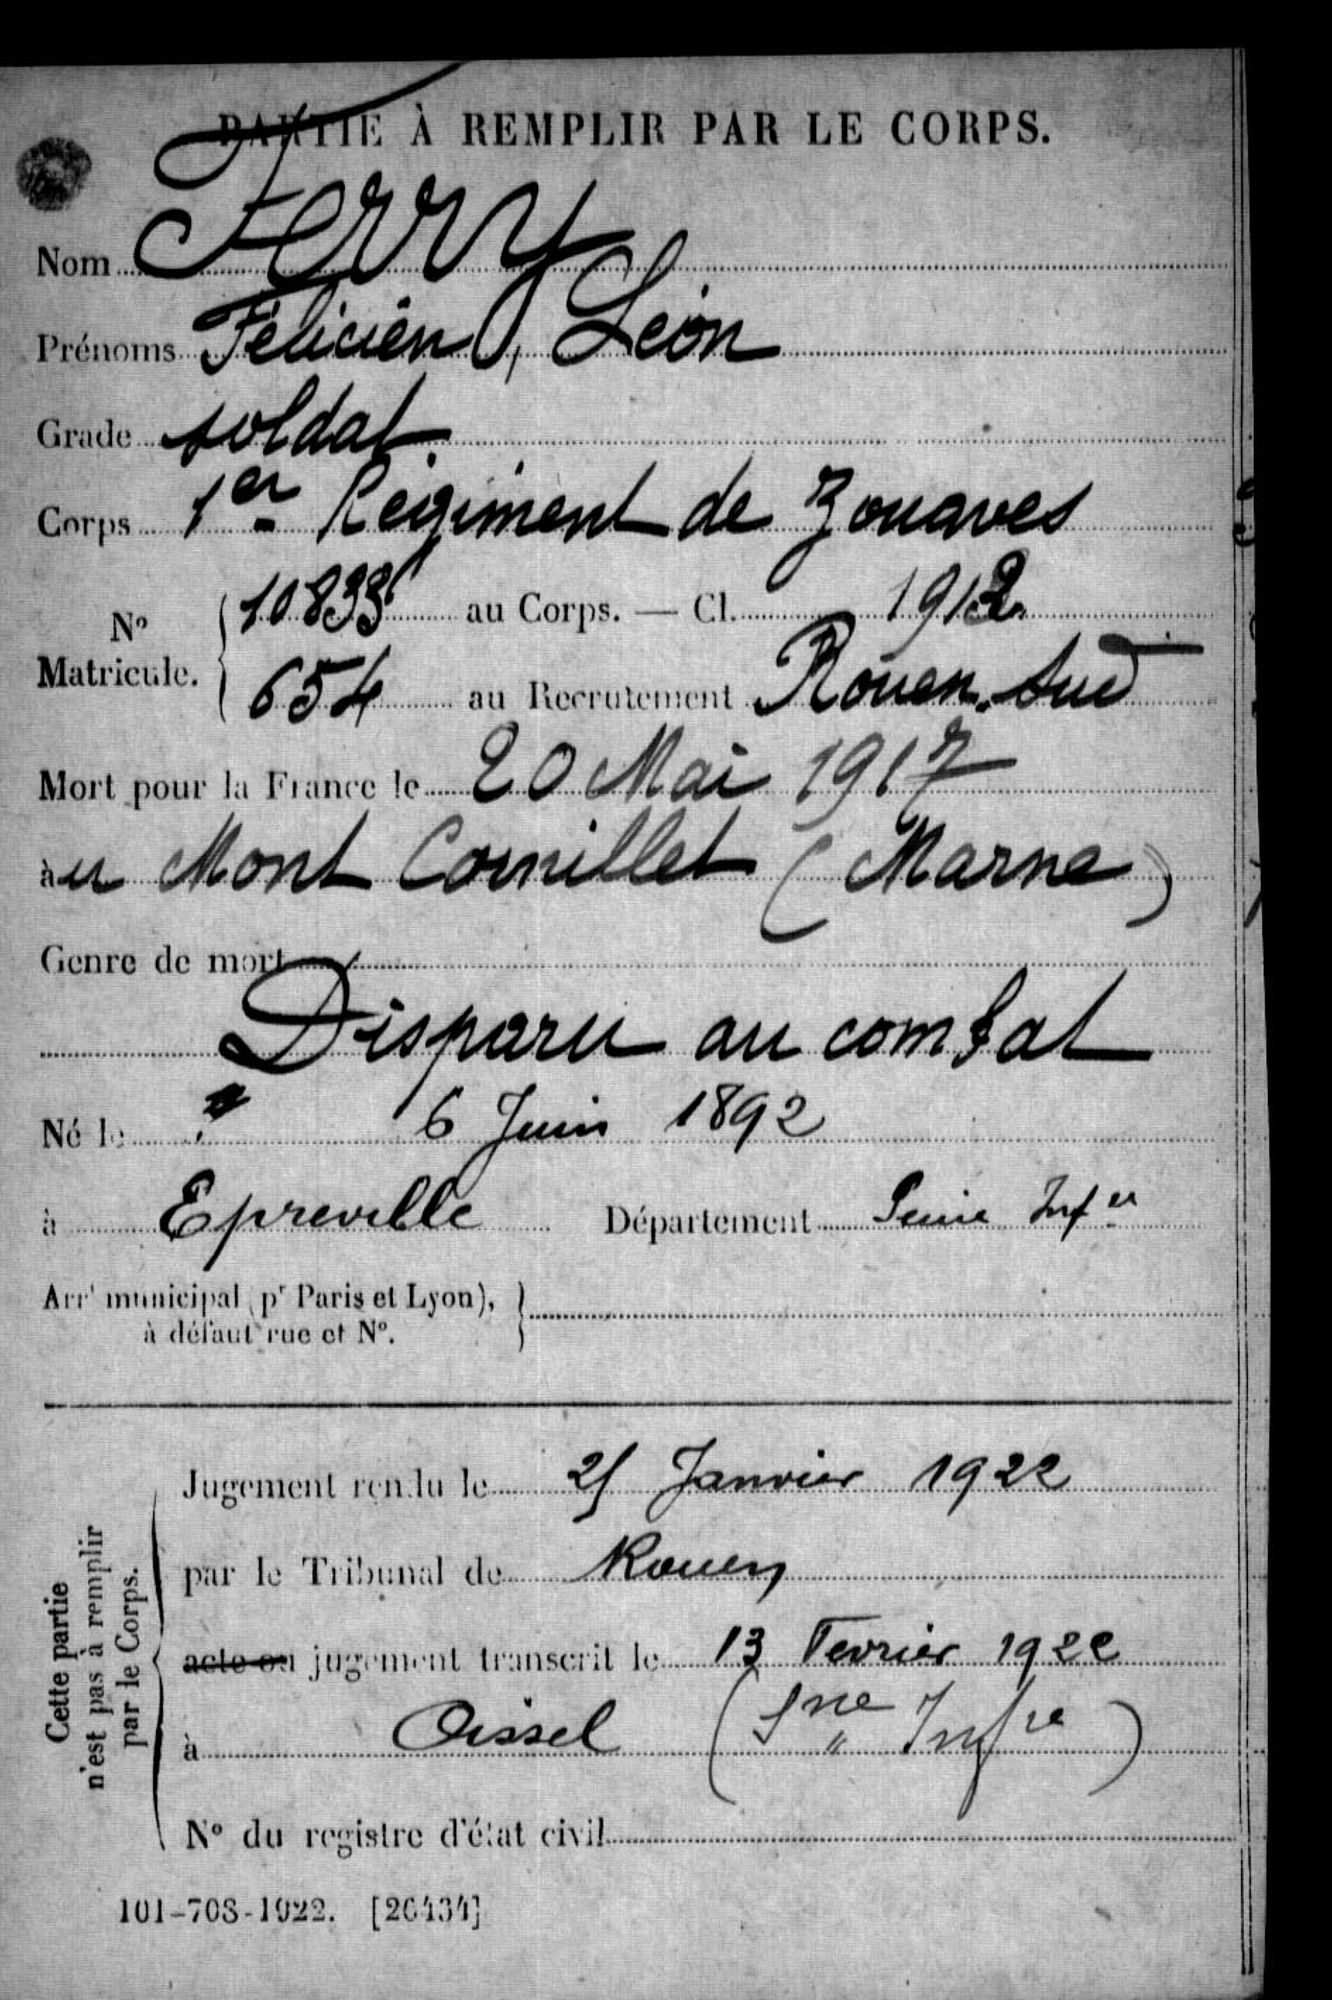 PARTIE À REMPLIR PAR LE CORPS.
Nom Ferry
Prénoms Félicien, Léon
Grade soldat
Corps 1er Régiment de Zouaves
No Matricule.
10833 au Corps. — Cl. 1912
654 au Recrutement Rouen. Sud
Mort pour la France le 20 Mai 1917
au Mont Cornillet (Marne)
Genre de mort
Disparu au combat
Né le 6 Juin 1892
à Epreville Département Seine Infre
Arrt municipal (pr Paris et Lyon),
à défaut rue et No.
Cette partie
n'est pas à remplir
par le Corps.
Jugement rendu le Janvier 1922
par le Tribunal de Rouen
acte ou jugement transcrit le 13 Fevrier 1922
à Oissel (Sne Infre)
No du registre d'état civil
101-708-1922. [26434]